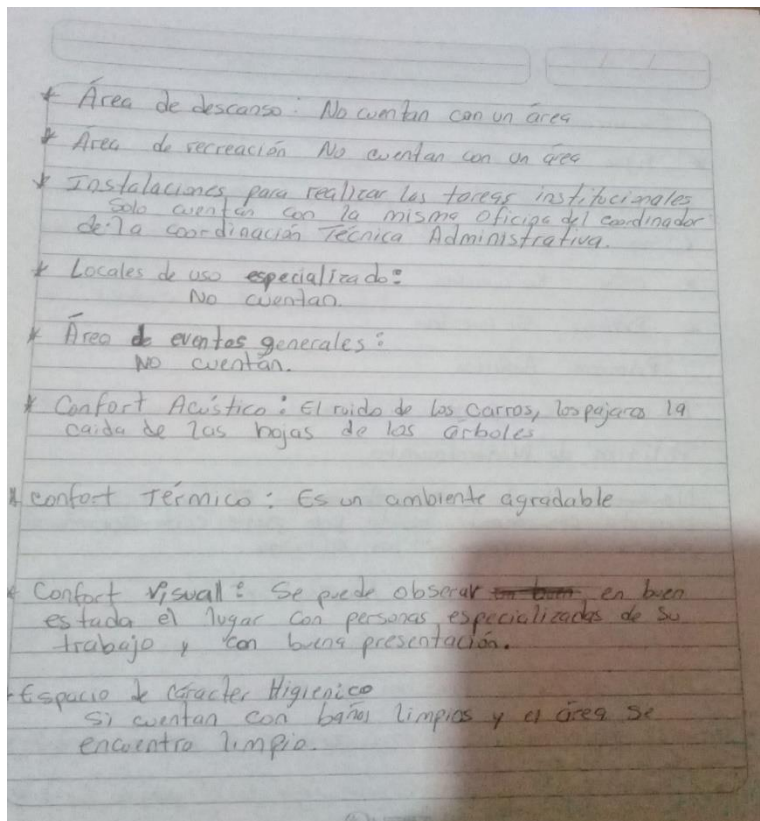 * Área de descanso: No cuentan con un área
* Área de recreación No cuentan con un área
* Instalaciones para realizar las tareas institucionales
Solo cuentan con la misma oficina del coordinador
de la coordinación Técnica Administrativa.
* Locales de uso especializado:
No cuentan.
* Área de eventos generales:
No cuentan.
* Confort Acústico: El ruido de los carros, los pajaros la
caida de las hojas de los árboles
* confort Térmico: Es un ambiente agradable
* Confort Visual: Se puede obserar en buen
estada el lugar con personas especializadas de su
trabajo y con buena presentación.
- Espacio de Carácter Higienico
Si cuentan con baños limpios y el área se
encuentro limpio.